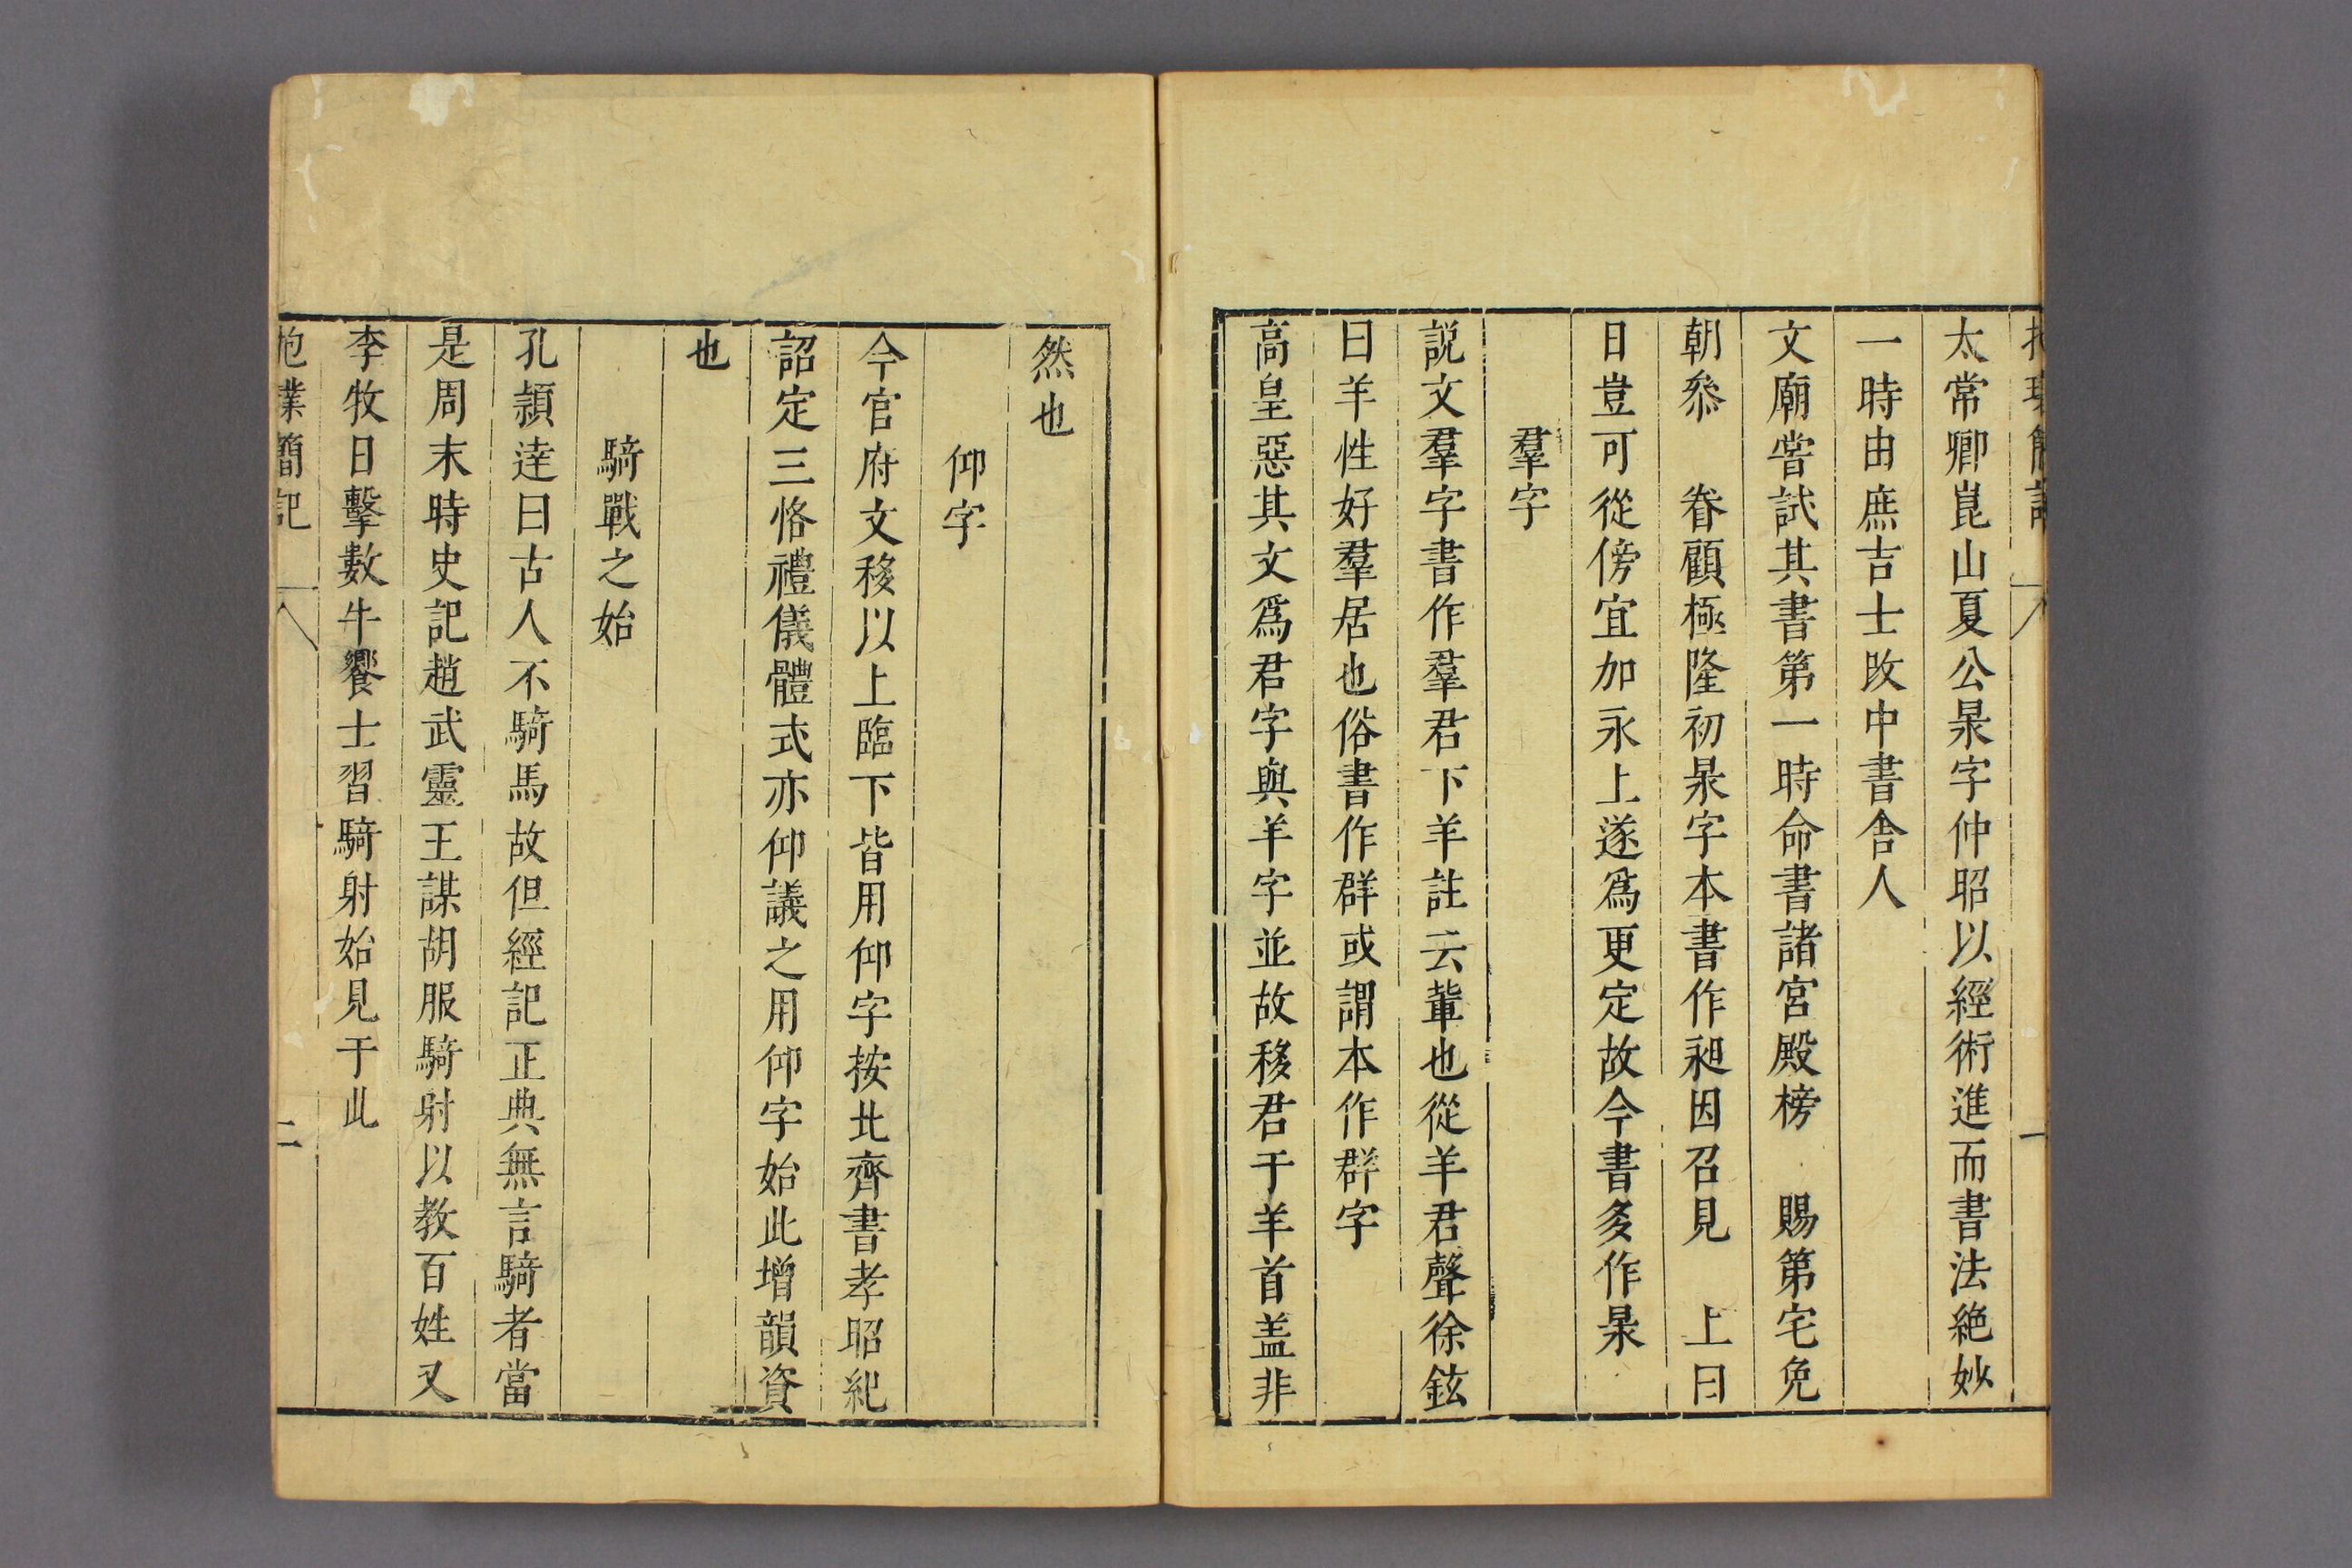 太常卿崑山夏公㫤字仲昭以經術進而書法絶妙
一時由庶吉士改中書舎人
文廟甞試其書第一時命書諸宮殿榜　賜第宅免
朝叅　眷顧極隆初㫤字本書作昶因召見　上曰
日豈可從傍宜加永上遂爲更定故今書多作㫤
羣字
説文羣字書作羣君下羊註云軰也從羊君聲徐鉉
曰羊性好羣居也俗書作群或謂本作群字
高皇惡其文爲君字與羊字並故移君于羊首盖非
然也
仰字
今官府文移以上臨下皆用仰字按北齊書孝昭紀
詔定三恪禮儀體式亦仰議之用仰字始此增韻資
也
騎戰之始
孔頴達曰古人不騎馬故但經記正典無言騎者當
是周末時史記趙武靈王謀胡服騎射以教百姓又
李牧日擊數牛饗士習騎射始見于此
抱璞簡記　二